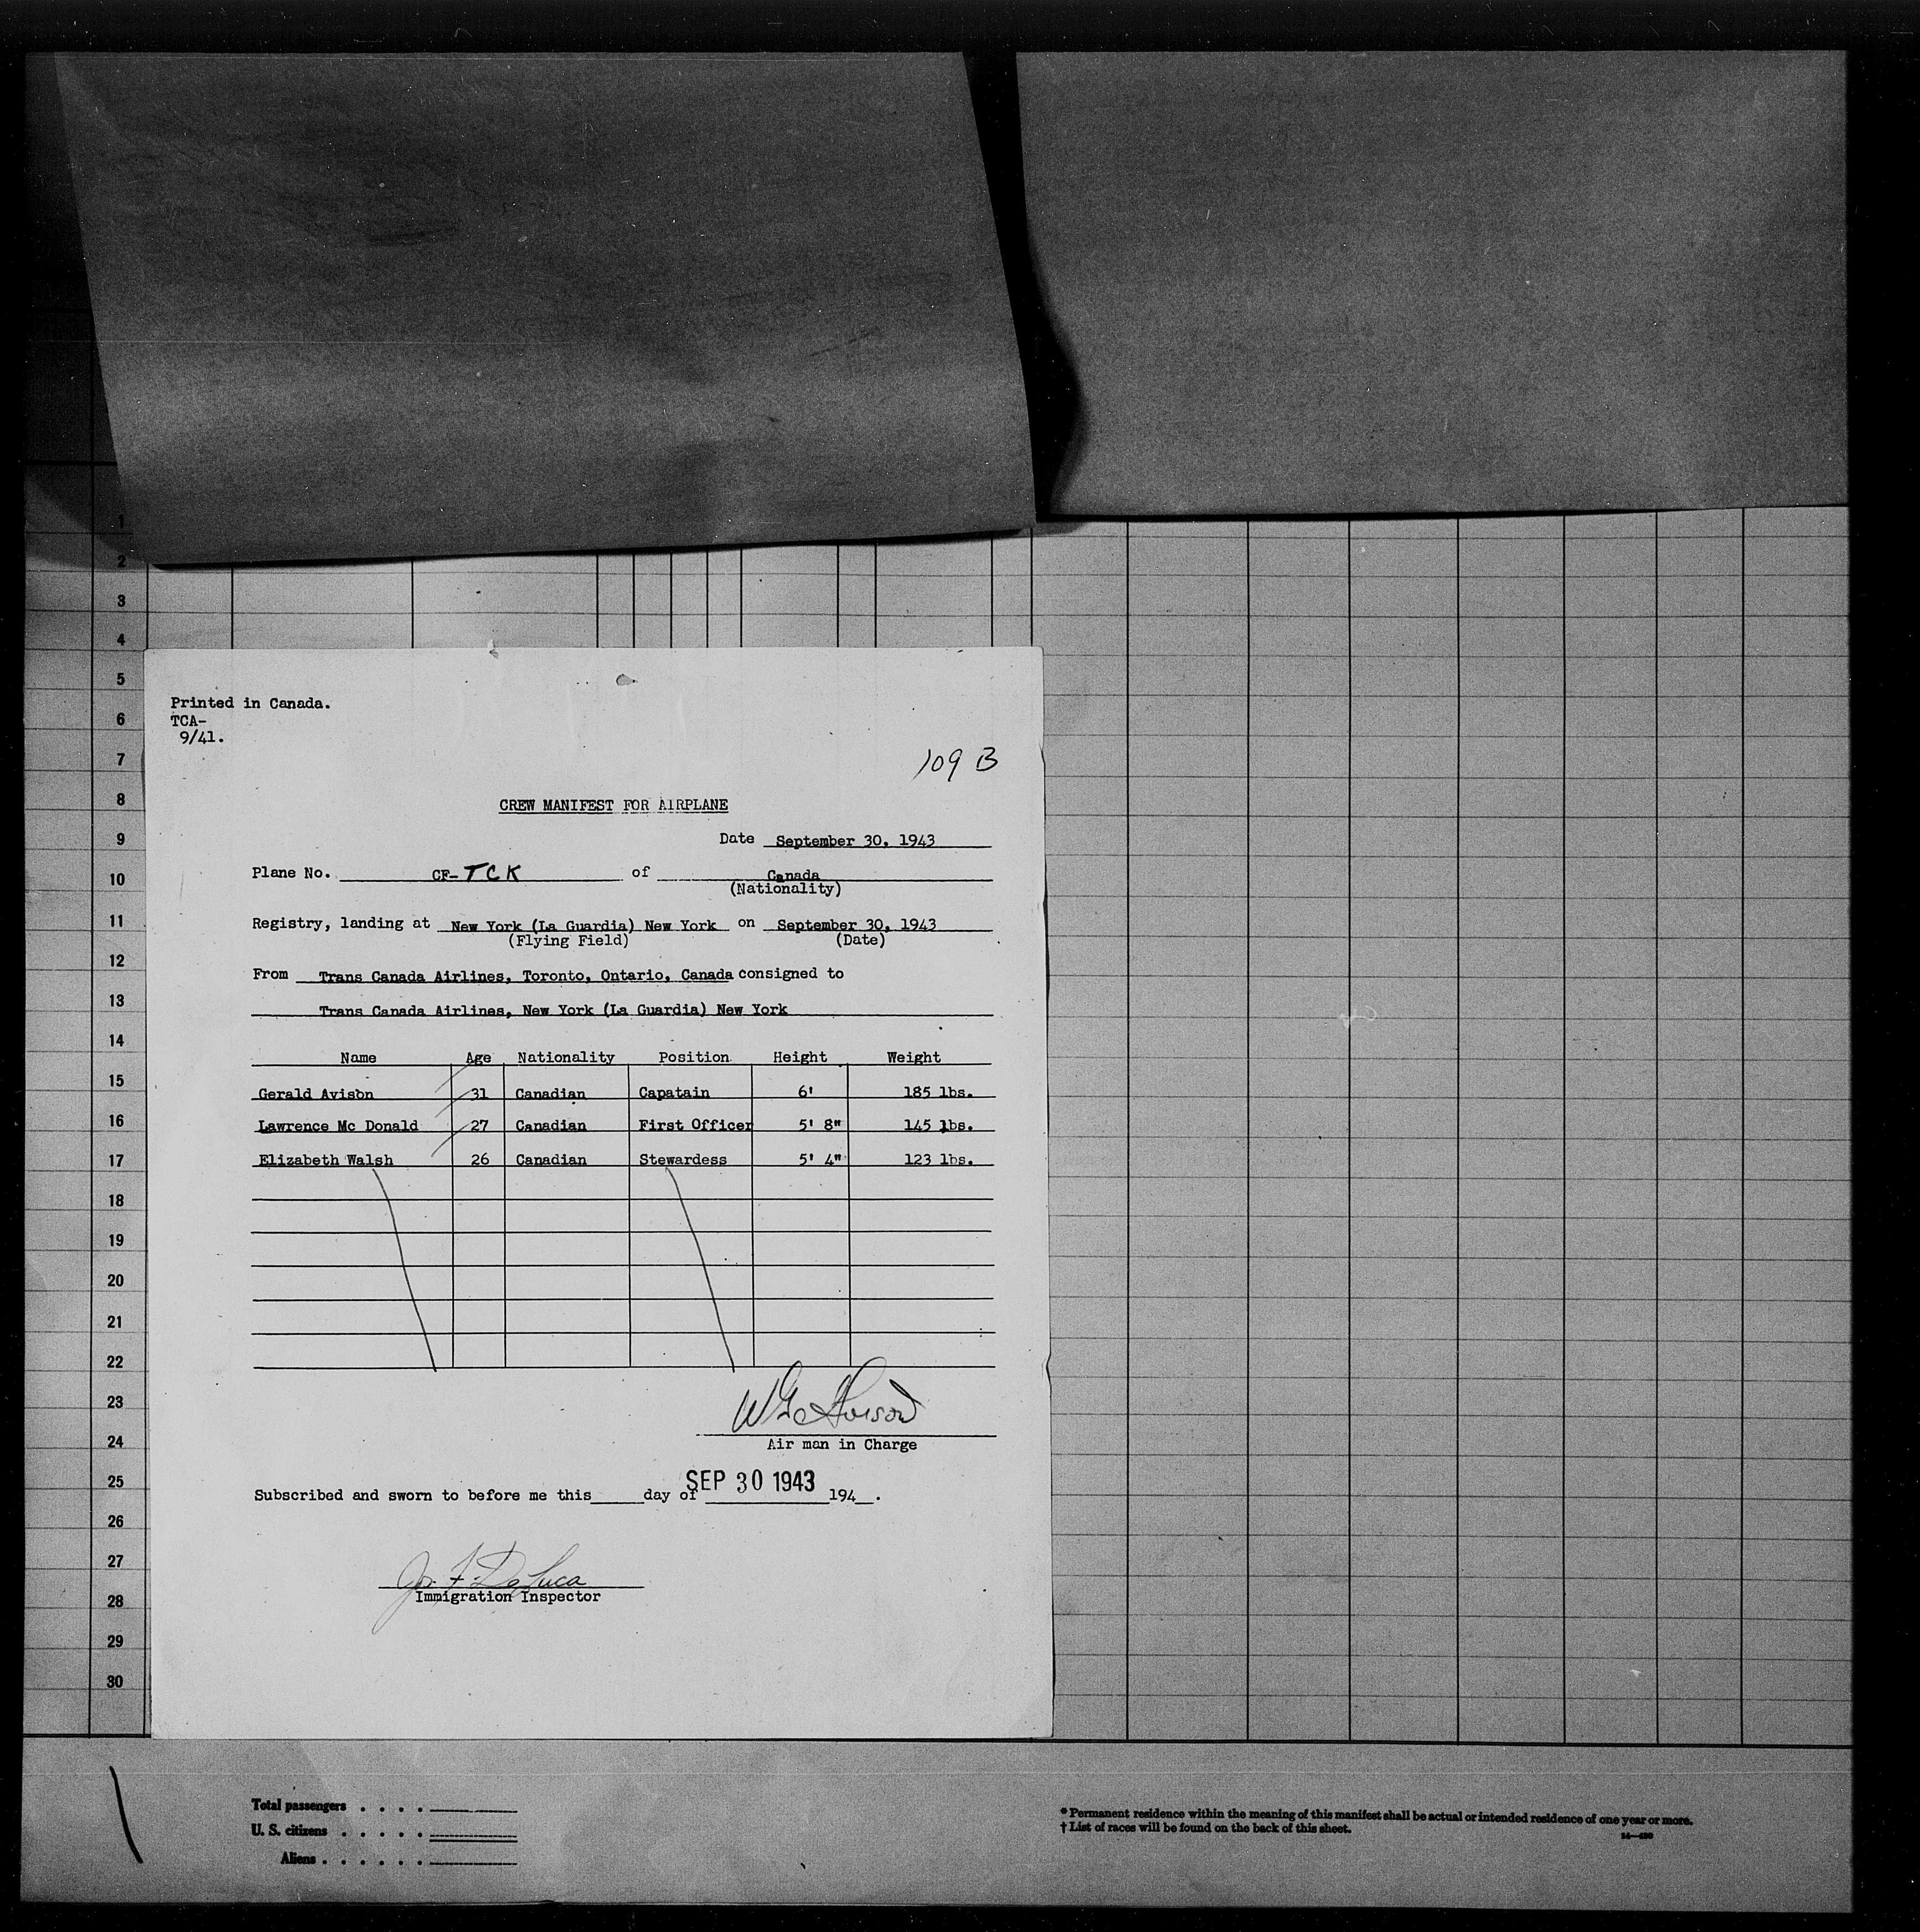 Printed in Canada.
TCA-
9/41.
109 B
CREW MANIFEST FOR AIRPLANE
Date September 30, 1943
Plane No. CF-TCK of Canada
(Nationality)
Registry, landing at New York (La Guardia) New York on September 30, 1943
(Flying Field) (Date)
From Trans Canada Airlines, Toronto, Ontario, Canada consigned to
Trans Canada Airlines, New York (La Guardia) New York
Name Age Nationality Position Height Weight
Gerald Avison 31 Canadian Capatain 6' 185 lbs.
Lawrence Mc Donald 27 Canadian First Officer 5' 8" 145 lbs.
Elizabeth Walsh 26 Canadian Stewardess 5' 4" 123 lbs.
WG Avison
Air man in Charge
SEP 30 1943
Subscribed and sworn to before me this day of 194 .
Jos. F. DeLuca
Immigration Inspector
1
2
3
4
5
6
7
8
9
10
11
12
13
14
15
16
17
18
19
20
21
22
23
24
25
26
27
28
29
30
Total passengers . . . .
U. S. citizens . . . . .
Aliens . . . . . .
* Permanent residence within the meaning of this manifest shall be actual or intended residence of one year or more.
† List of races will be found on the back of this sheet.